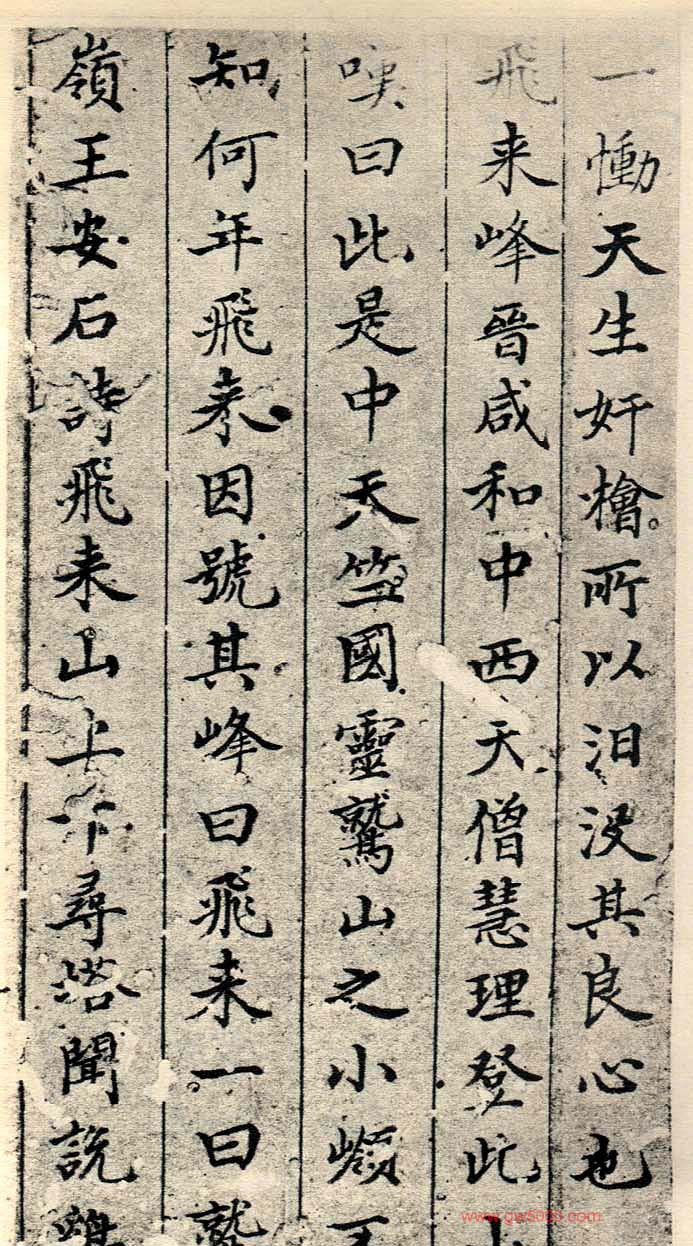 一慟天生奸檜所以汨没其良心也
飛来峰晉咸和中西天僧慧理登此
嘆曰此是中天竺國靈鷲山之小嶺不
知何年飛来因號其峰曰飛来一曰鷲
嶺王安石詩飛来山上千尋塔聞說鷄